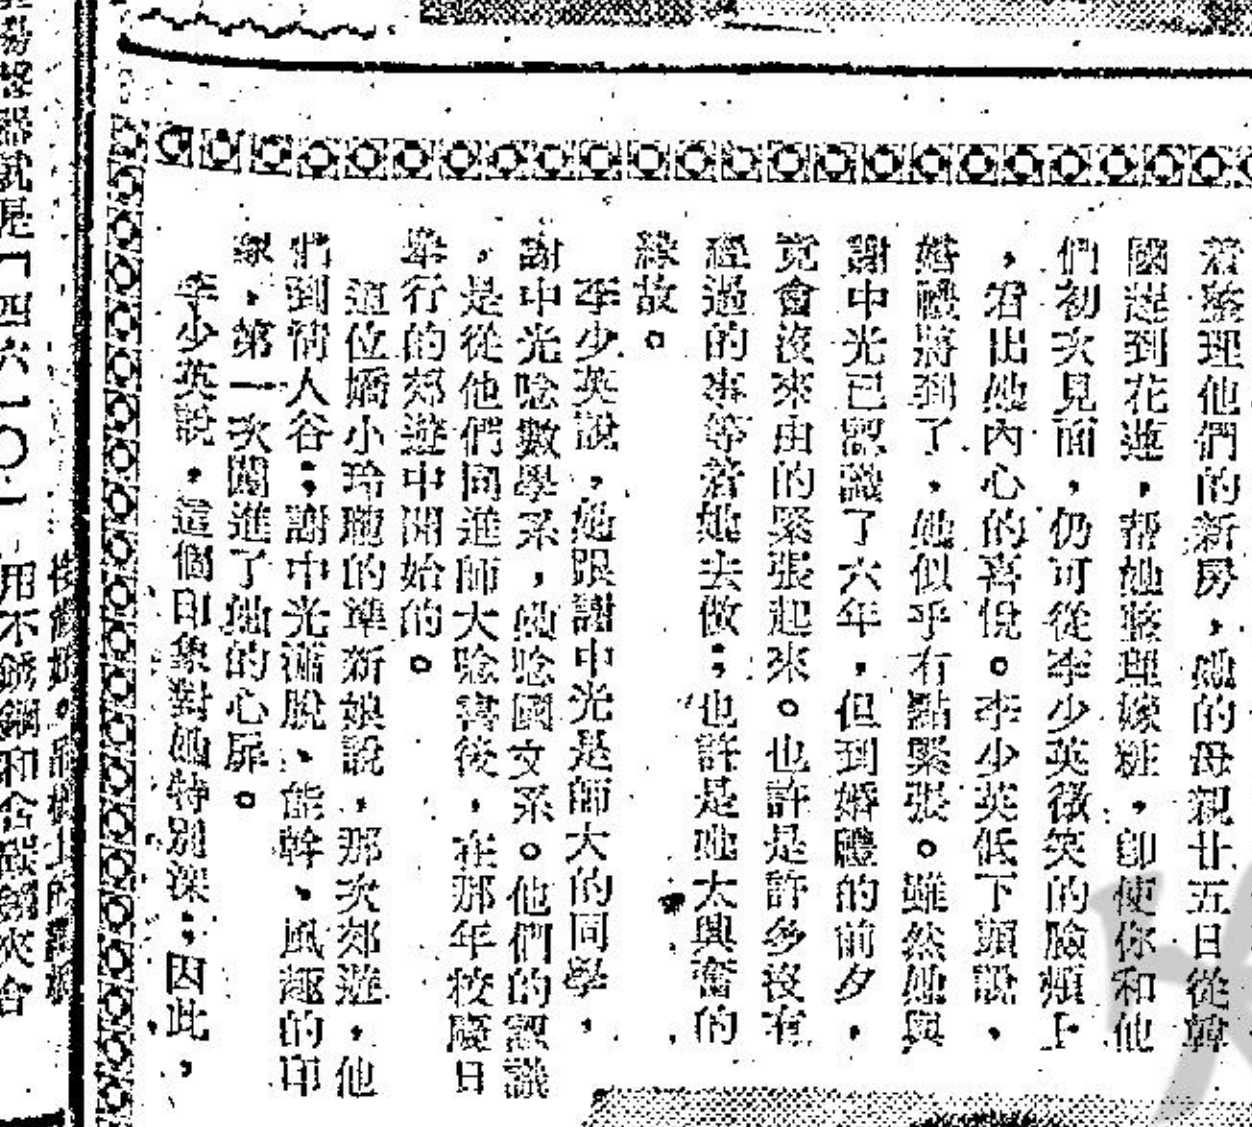 着整理他們的新房，她的母親廿五日從韓
國趕到花蓮，帮她整理嫁粧，卽使你和他
們初次見面，仍可從李少英微笑的臉頰上
，看出她內心的喜悅。李少英低下頭說，
婚禮將到了，她似乎有點緊張。雖然她與
謝中光已認識了六年，但到婚禮的前夕，
竟會沒來由的緊張起來。也許是許多沒有
經過的事等着她去做；也許是她太興奮的
緣故。
李少英說，她跟謝中光是師大的同學，
謝中光唸數學系，她唸國文系。他們的認識
，是從他們同進師大唸書後，在那年校慶日
舉行的郊遊中開始的。
這位嬌小玲瓏的準新娘說，那次郊遊，他
們到情人谷；謝中光瀟脫、能幹、風趣的印
象，第一次闖進了她的心扉。
李少英說，這個印象對她特別深；因此，
器就是「四六一〇」用不銹鋼和含碳鋼